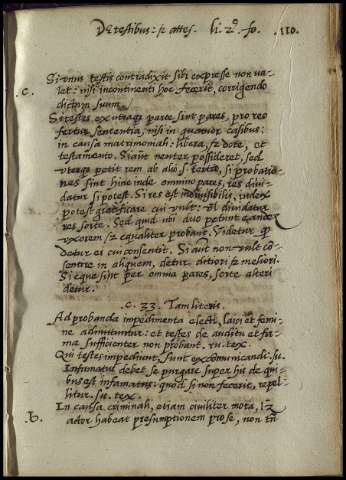 De testibus: & attes. li. 2º. fo. 110.
Si unus testis contradixit sibi expresse non va-
c. let: nisi incontinenti hoc fecerit, corrigendo
dictum suum.
Si testes ex utraque parte sint pares, pro reo
fertur sententia, nisi in quatuor casibus:
in causa matrimoniali: libera, & dote, et
testamento. Si aut neuter possideret, sed
uterque petit rem ab alio & tertio, si probatio-
nes sint hinc inde omnino pares, res divi-
datur si potest. Si res est indivisibilis, iudex
potest gratificare cui vult: vel dividetur
res sorte. Sed quid ubi duo petunt eandem
uxorem & equaliter probant. Videtur
detur ei cui consentit. Si aut non vult co-
sentire in aliquem, detur ditiori & meliori.
Si eque sint per omnia pares, sorte alteri
detur.
c. 33. Tam literis.
Ad probanda impedimenta electi, laici et femi-
ne admittuntur: et testes de auditu et fa-
ma sufficienter non probant. iu. tex.
Qui testes impediunt, sunt excommunicandi. su.
Infamatus debet se purgare super his de qui-
bus est infamatus: quod si non fecerit, repel-
litur. su. tex.
b. In causa criminali, etiam civiliter mota, l3
actor habeat presumptionem pro se, non tn